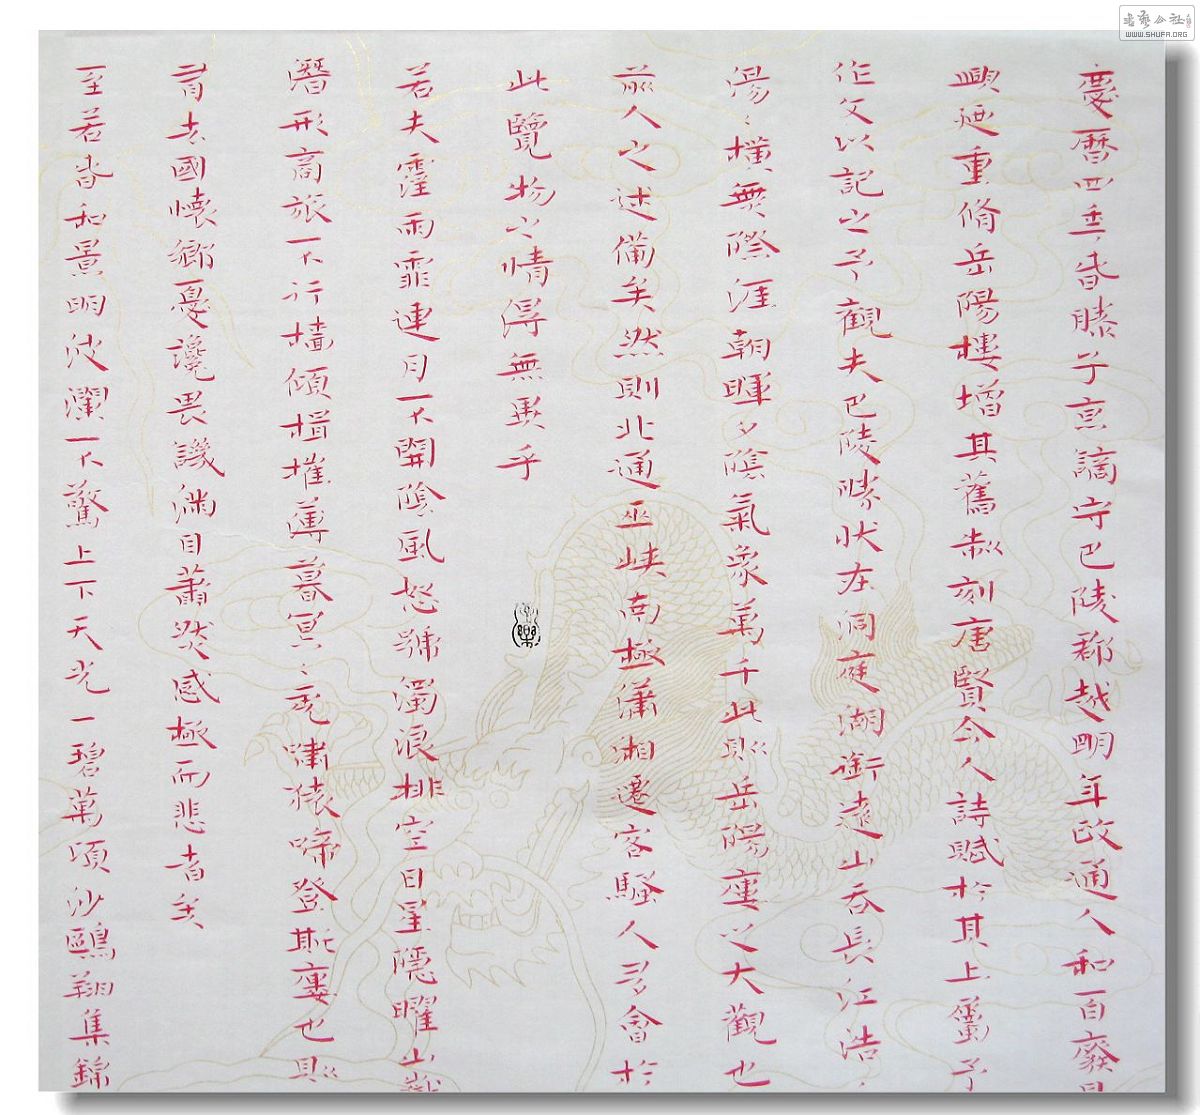 慶曆四年春滕子京謫守巴陵郡越明年政通人和百廢具
興廼重脩岳陽樓增其舊制刻唐賢今人詩賦於其上屬予
作文以記之予觀夫巴陵勝狀在洞庭湖銜遠山吞長江浩〻
湯〻橫無際涯朝暉夕陰氣象萬千此則岳陽樓之大觀也
前人之述備矣然則北通巫峽南極瀟湘遷客騷人多會於
此覽物之情得無異乎
若夫霪雨霏連月不開陰風怒號濁浪排空日星隱曜山嶽
潛形商旅不行檣傾楫摧薄暮冥〻虎嘯猿啼登斯樓也則
有去國懷鄉憂讒畏譏滿目蕭然感極而悲者矣
至若春和景明波瀾不驚上下天光一碧萬頃沙鷗翔集錦
書藝公社
WWW.SHUFA.ORG